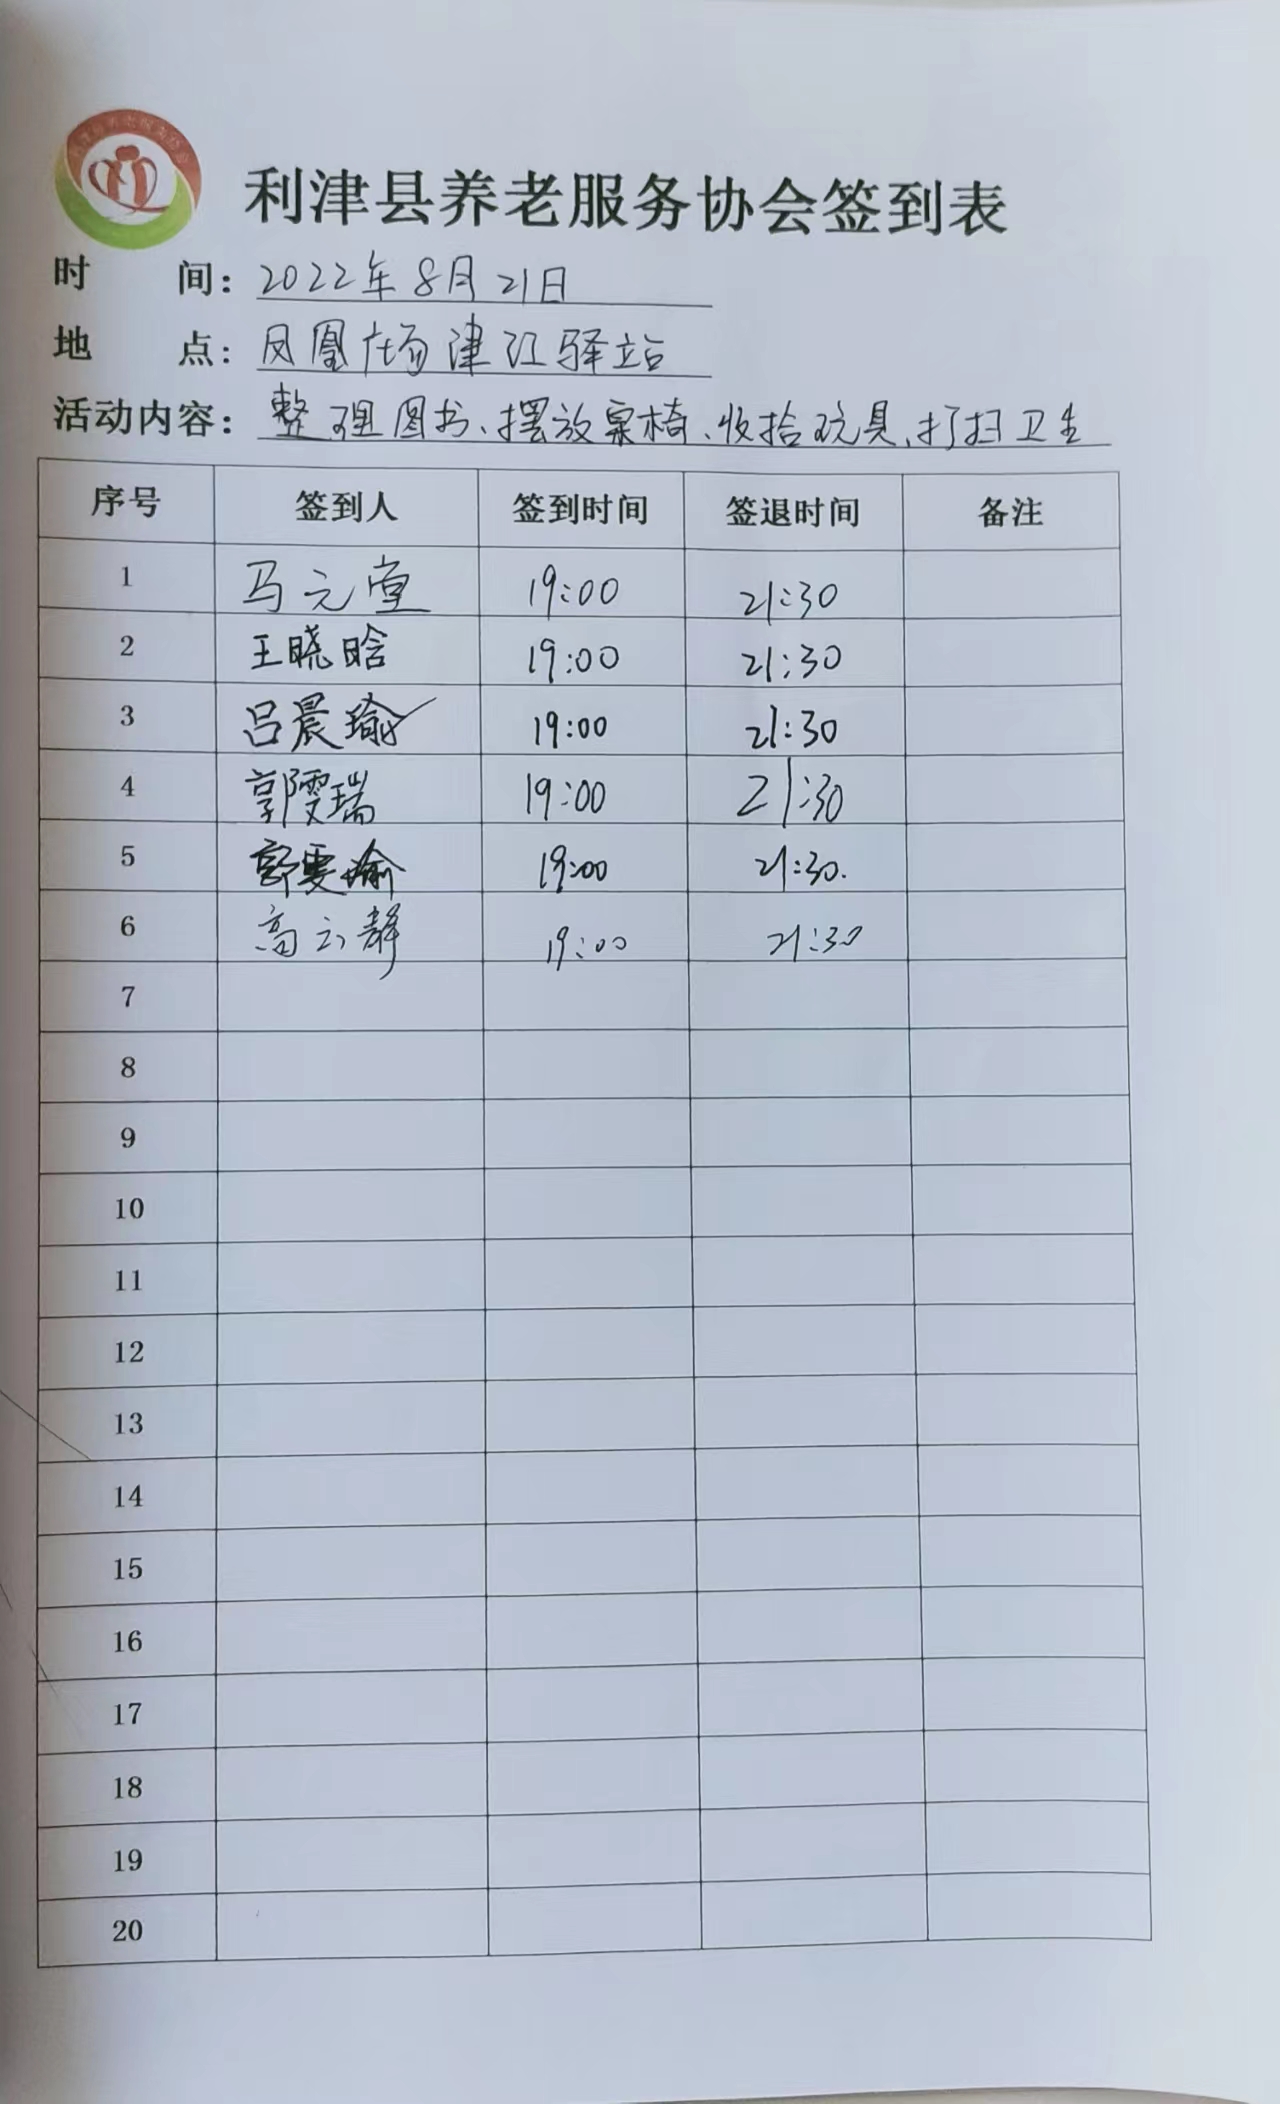 利津县养老服务协会签到表
时 间：2022年8月21日
地 点：凤凰广场津江驿站
活动内容：整理图书、摆放桌椅、收拾玩具、打扫卫生
序号 签到人 签到时间 签退时间 备注
1 马元堂 19:00 21:30
2 王晓晗 19:00 21:30
3 吕晨瑜 19:00 21:30
4 郭雯瑞 19:00 21:30
5 郭雯瑜 19:00 21:30.
6 高云静 19:00 21:30
7
8
9
10
11
12
13
14
15
16
17
18
19
20